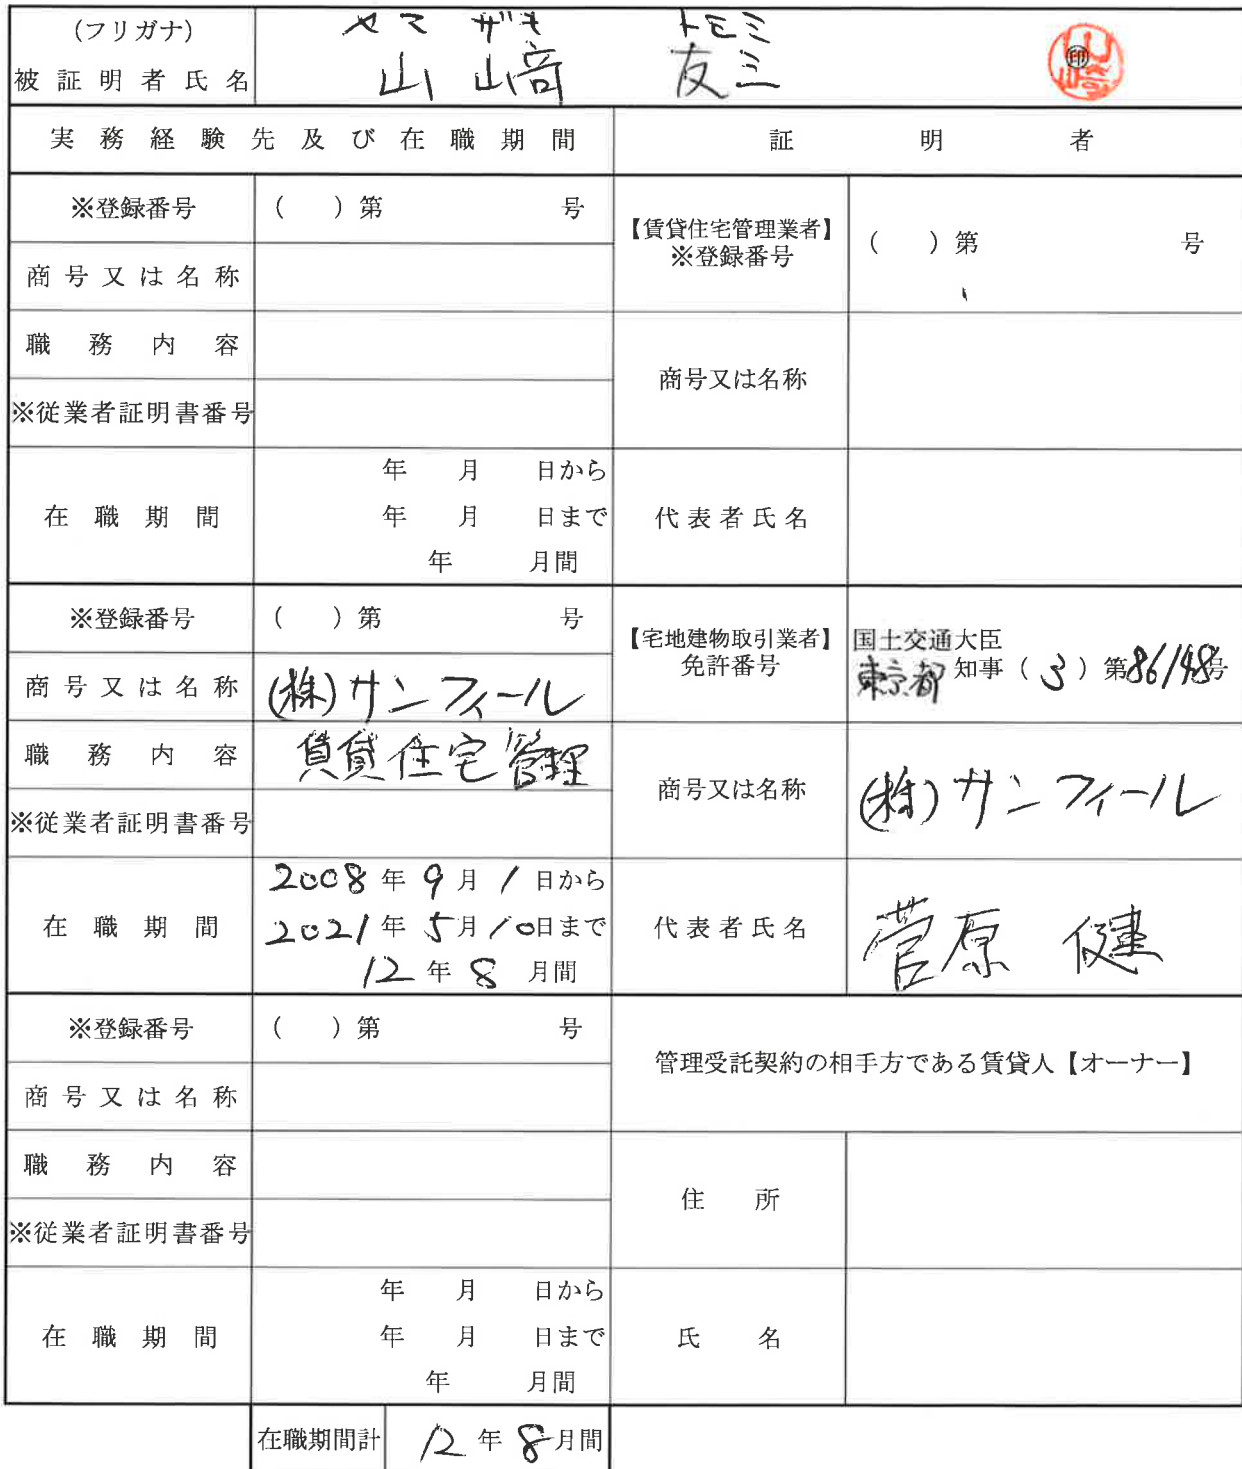 (フリガナ) ヤマ ザキ トモミ
被証明者氏名 山﨑 友三 ㊞
実務経験先及び在職期間 証明者
※登録番号 ( )第 号
商号又は名称
職務内容
※従業者証明書番号
在職期間 年 月 日から
年 月 日まで
年 月間
【賃貸住宅管理業者】
※登録番号 ( )第 号
商号又は名称
代表者氏名
※登録番号 ( )第 号
商号又は名称 (株)サンフィール
職務内容 賃貸住宅管理
※従業者証明書番号
在職期間 2008年9月1日から
2021年5月10日まで
12年8月間
【宅地建物取引業者】
免許番号 国土交通大臣
東京都知事(3)第86148号
商号又は名称 (株)サンフィール
代表者氏名 菅原 健
※登録番号 ( )第 号
商号又は名称
職務内容
※従業者証明書番号
在職期間 年 月 日から
年 月 日まで
年 月間
管理受託契約の相手方である賃貸人【オーナー】
住所
氏名
在職期間計 12年8月間